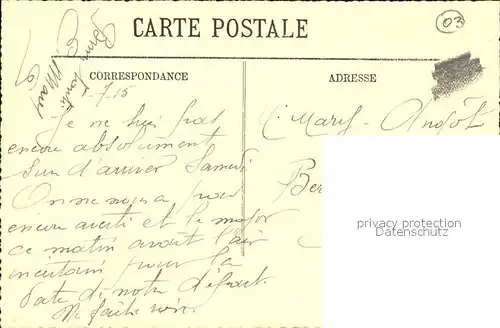 03
CARTE POSTALE
CORRESPONDANCE
ADRESSE
7.15
Je ne suis pas
encore absolument
sur d'arriver Samedi
On ne nous a pas
encore averti et le major
ce matin avait l'air
incertain pour la
date de notre départ.
M. Mary
Ber
privacy protection
Datenschutz